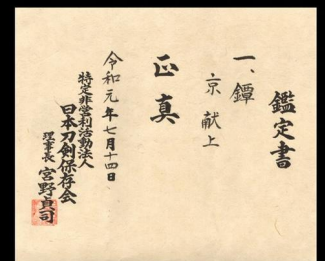 鑑定書
一、鐔
京献上
正真
令和元年七月十四日
特定非営利活動法人
日本刀剣保存会
理事長 宮野貞司